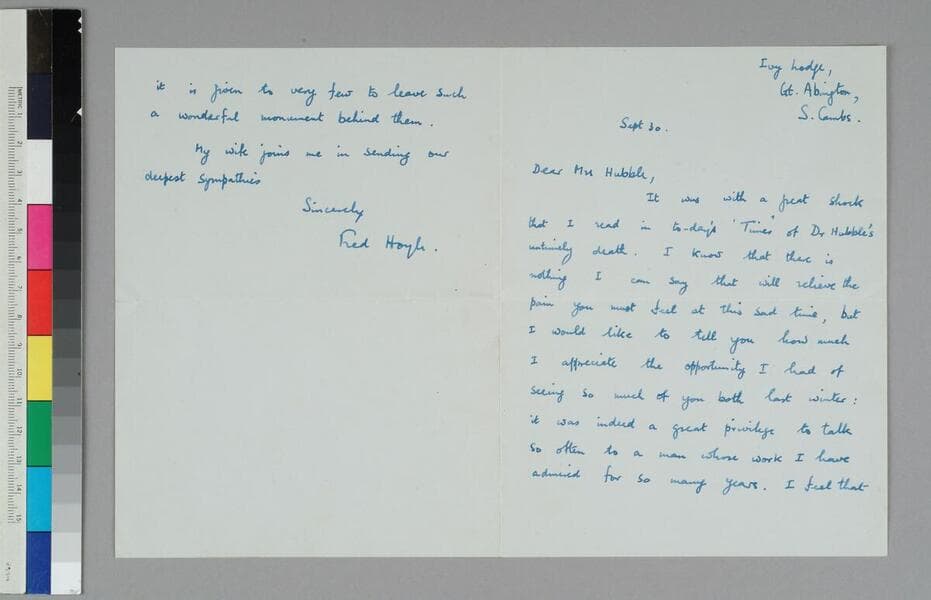 Ivy Lodge,
Gt. Abington,
S. Cambs.
Sept 30.
Dear Mrs Hubble,
It was with a great shock
that I read in to-day's 'Times' of Dr Hubble's
untimely death. I know that there is
nothing I can say that will relieve the
pain you must feel at this sad time, but
I would like to tell you how much
I appreciate the opportunity I had of
seeing so much of you both last winter:
it was indeed a great privilege to talk
so often to a man whose work I have
admired for so many years. I feel that
it is given to very few to leave such
a wonderful monument behind them.
My wife joins me in sending our
deepest sympathies
Sincerely
Fred Hoyle.